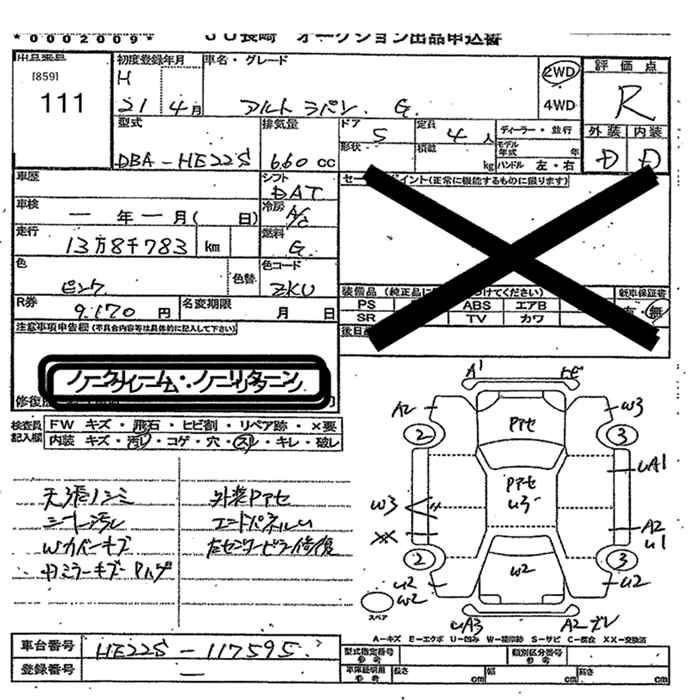 *0002009*
JU長崎 オークション出品申込書
出品番号
[859]
111
初度登録年月
H
21 4月
車名・グレード
アルト ラパン. G.
2WD
4WD
評価点
R
外装 内装
D D
型式
DBA-HE22S
排気量
660 cc
ドア
5
形状
定員
4人
積載
kg
ディーラー・並行
モデル年式 年
ハンドル 左・右
車歴
シフト
DAT
車検
ー年ー月( 日)
冷房
A/C
走行
13万8千783 km
燃料
G.
色
ピンク
色替
色コード
ZKU
R券
9,170円
名変期限
月 日
(正常に機能するものに限ります)
装備品
PS
ABS エアB
SR
TV カワ
新車保証書
無
注意事項申告欄(不具合内容等は具体的に記入して下さい)
ノークレーム・ノーリターン
検査員記入欄
FW キズ・飛石・ヒビ割・リペア跡・×要
内装 キズ・汚レ・コゲ・穴・スレ・キレ・破レ
天張シミ
シート汚レ
Wカバーキズ
外装Pアセ
エンドパネルU
左センターピラー修復
A1
A2
2
W3
XX
2
U2
W2
スペア
UA3
Pアセ
Pアセ
U3
W2
W3
3
UA1
A2
U1
3
U2
A2ズレ
A-キズ E-エクボ U-凹み W-補修跡 S-サビ C-腐食 XX-交換済
車台番号
HE22S-117595
登録番号
ー
型式指定番号
参考
類別区分番号
参考
車庫証明用
参考
長さ
cm
幅
cm
高さ
cm